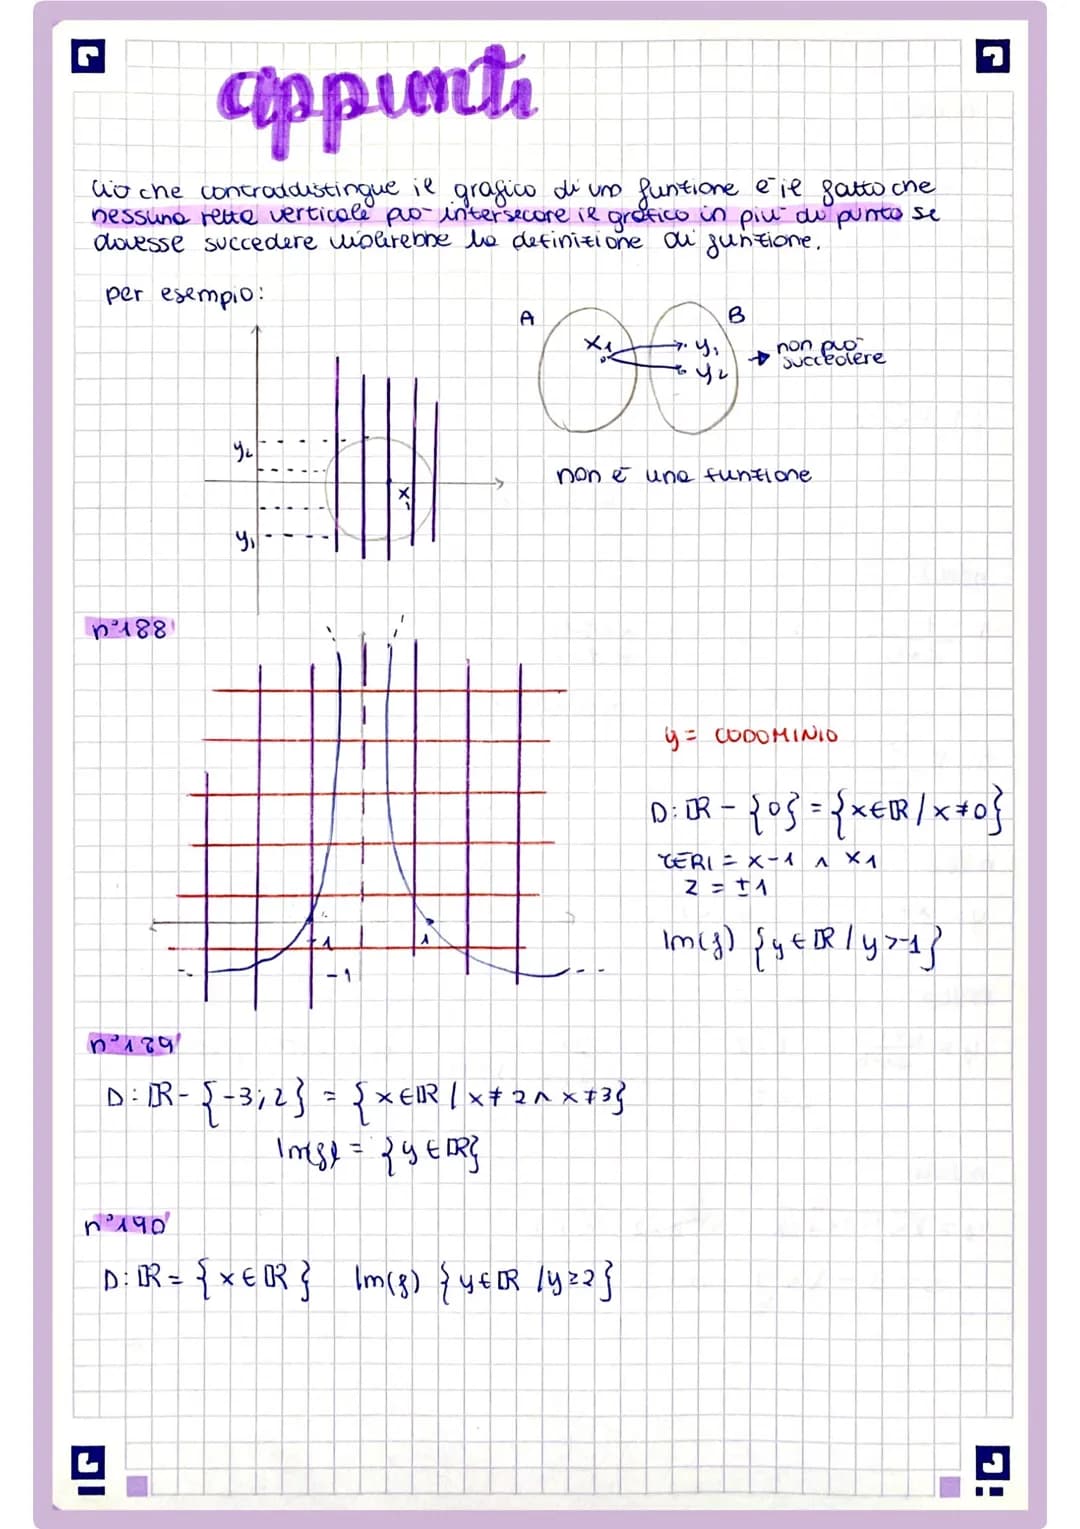 appunti
Ciò che contraddistingue il grafico di una funzione è il fatto che
nessuna retta verticale può intersecare il grafico in più di punto se
dovesse succedere violerebbe la definizione di funzione.
per esempio:
A B
x₁ y₁
y₂
→ non può
succedere
y₂
x₁
y₁
non è una funzione
n°188
y = CODOMINIO
D: ℝ - {0} = {x∈ℝ / x≠0}
ZERI = x-1 ∧ x1
z = ±1
Im(f) {y∈ℝ / y>-1}
-1 1
-1
n°189
D: ℝ - {-3;2} = {x∈ℝ / x≠2 ∧ x≠3}
Im(f) = {y∈ℝ}
n°190
D: ℝ = {x∈ℝ} Im(f) {y∈ℝ / y≥2}